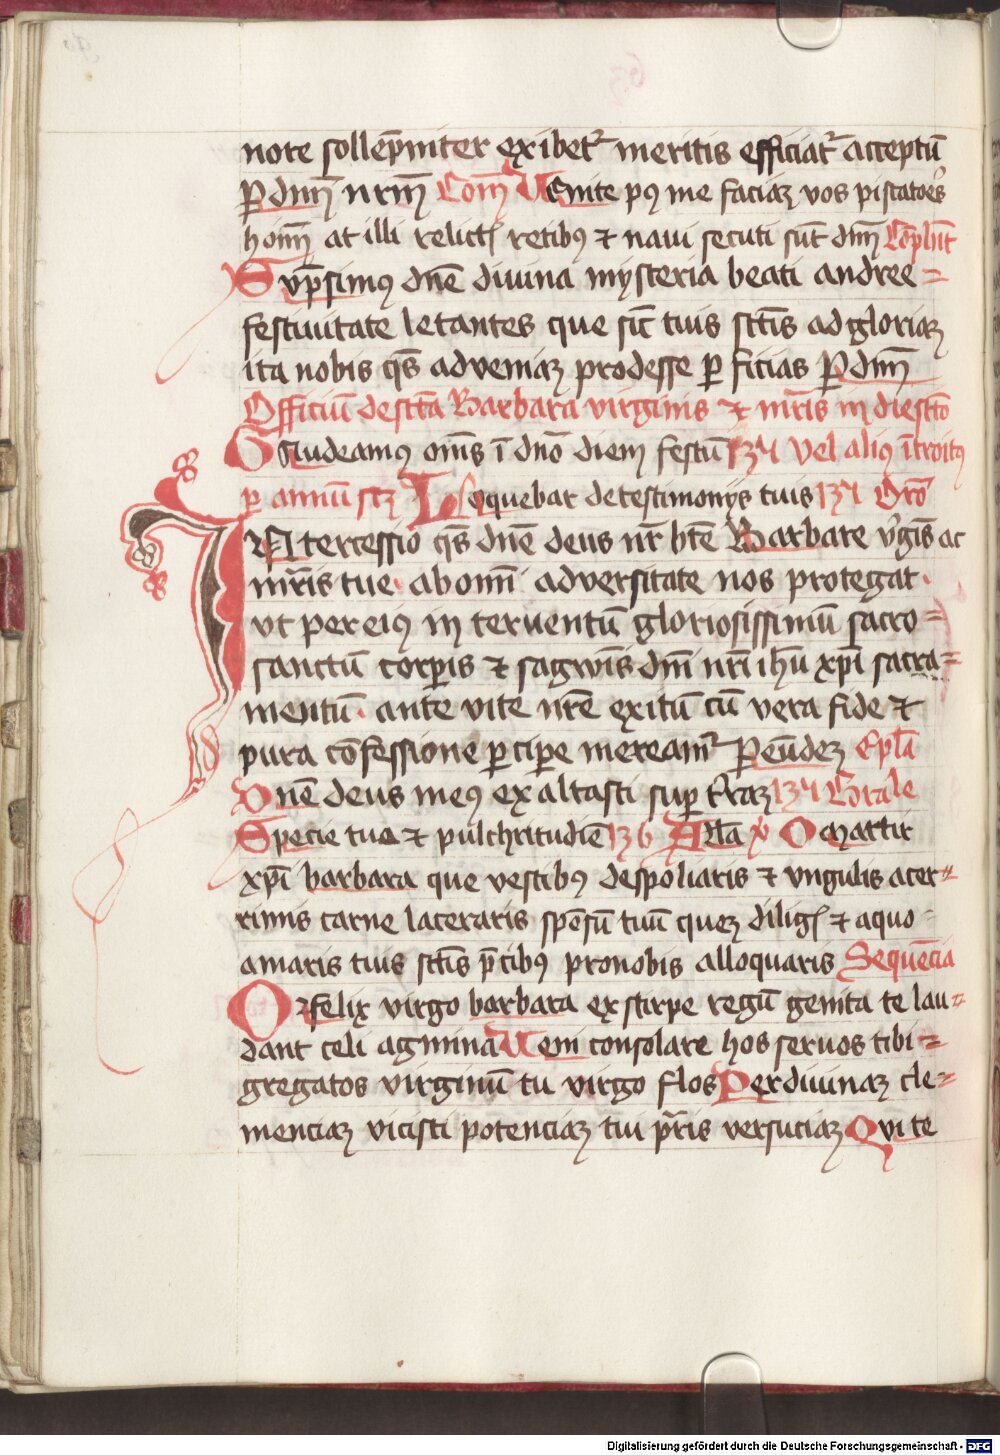 note solle͞pniter exibet᷑ meritis efficiat᷑ acceptū
ꝑ dnm̄ nrm̄ Com̄ Uenite pꝰ me faciaꝫ vos piscatoēs
homī at illi relictꝭ retibꝰ ⁊ naui secuti sūt dnm̄ Co͞plūt
Sūpsimꝰ dn̄e diuina mysteria beati andree=
festiuitate letantes que sic̄ tuis sct̄is ad gloriaꝫ
ita nobis q̄s adveniaꝫ prodesse ꝑ ficias P dnm̄
Officiū de sct̄a Barbara virginis ⁊ mr̄is in die st̄o
Gaudeamꝰ om̄s ī dn̄o diem festū 134 vel aliꝰ ītroitꝰ
ꝑ annū scꝫ Loquebar de testimonijs tuis 134 Oro͞
INtercessio q̄s dn̄e deus nr̄ bt̄e Barbare v̓gīs ac
mr̄is tue· ab om̄i adversitate nos protegat·
vt per eiꝰ in teruentū gloriosissimū sacro=
sanctū corꝑis ⁊ sagwīs dn̄i nr̄i ihū xp̄i sacra=
mentū· ante vite nr̄e exitū cū vera fide ⁊
pura cōfessione ꝑciꝑe meream᷑ P eūdeꝫ Epl̄a
Dn̄e deus meꝰ exaltasti suꝑ t̓raꝫ 134 Gra͞le
Specie tua ⁊ pulchritudīe 136 All̄a v̓ O martir
xp̄i barbara que vestibꝰ despoliaris ⁊ vngulis acer=
rimis carne laceraris spōsū tuū queꝫ diligꝭ ⁊ a quo
amaris tuis sct̄is p̄cibꝰ pro nobis alloquaris Sequēcia
O felix virgo barbara ex stirpe regū genita te lau=
dant celi agmina Ueni consolare hos seruos tibi=
gregatos virginū tu virgo flos Per diuinaꝫ cle=
menciaꝫ vicisti potenciaꝫ tui pr̄is versuciaꝫ Qui te
Digitalisierung gefördert durch die Deutsche Forschungsgemeinschaft - DFG